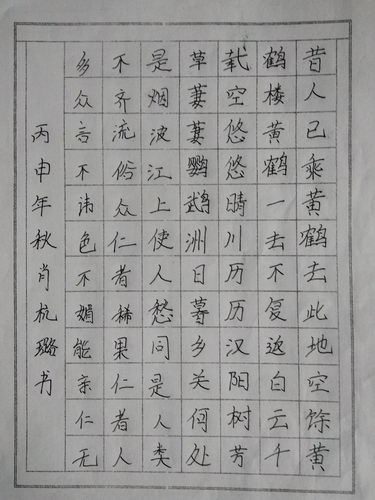 昔人已乘黄鹤去此地空馀黄
鹤楼黄鹤一去不复返白云千
载空悠悠晴川历历汉阳树芳
草萋萋鹦鹉洲日暮乡关何处
是烟波江上使人愁同是人类
不齐流俗众仁者稀果仁者人
多众言不讳色不媚能亲仁无
丙申年秋肖杭璐书